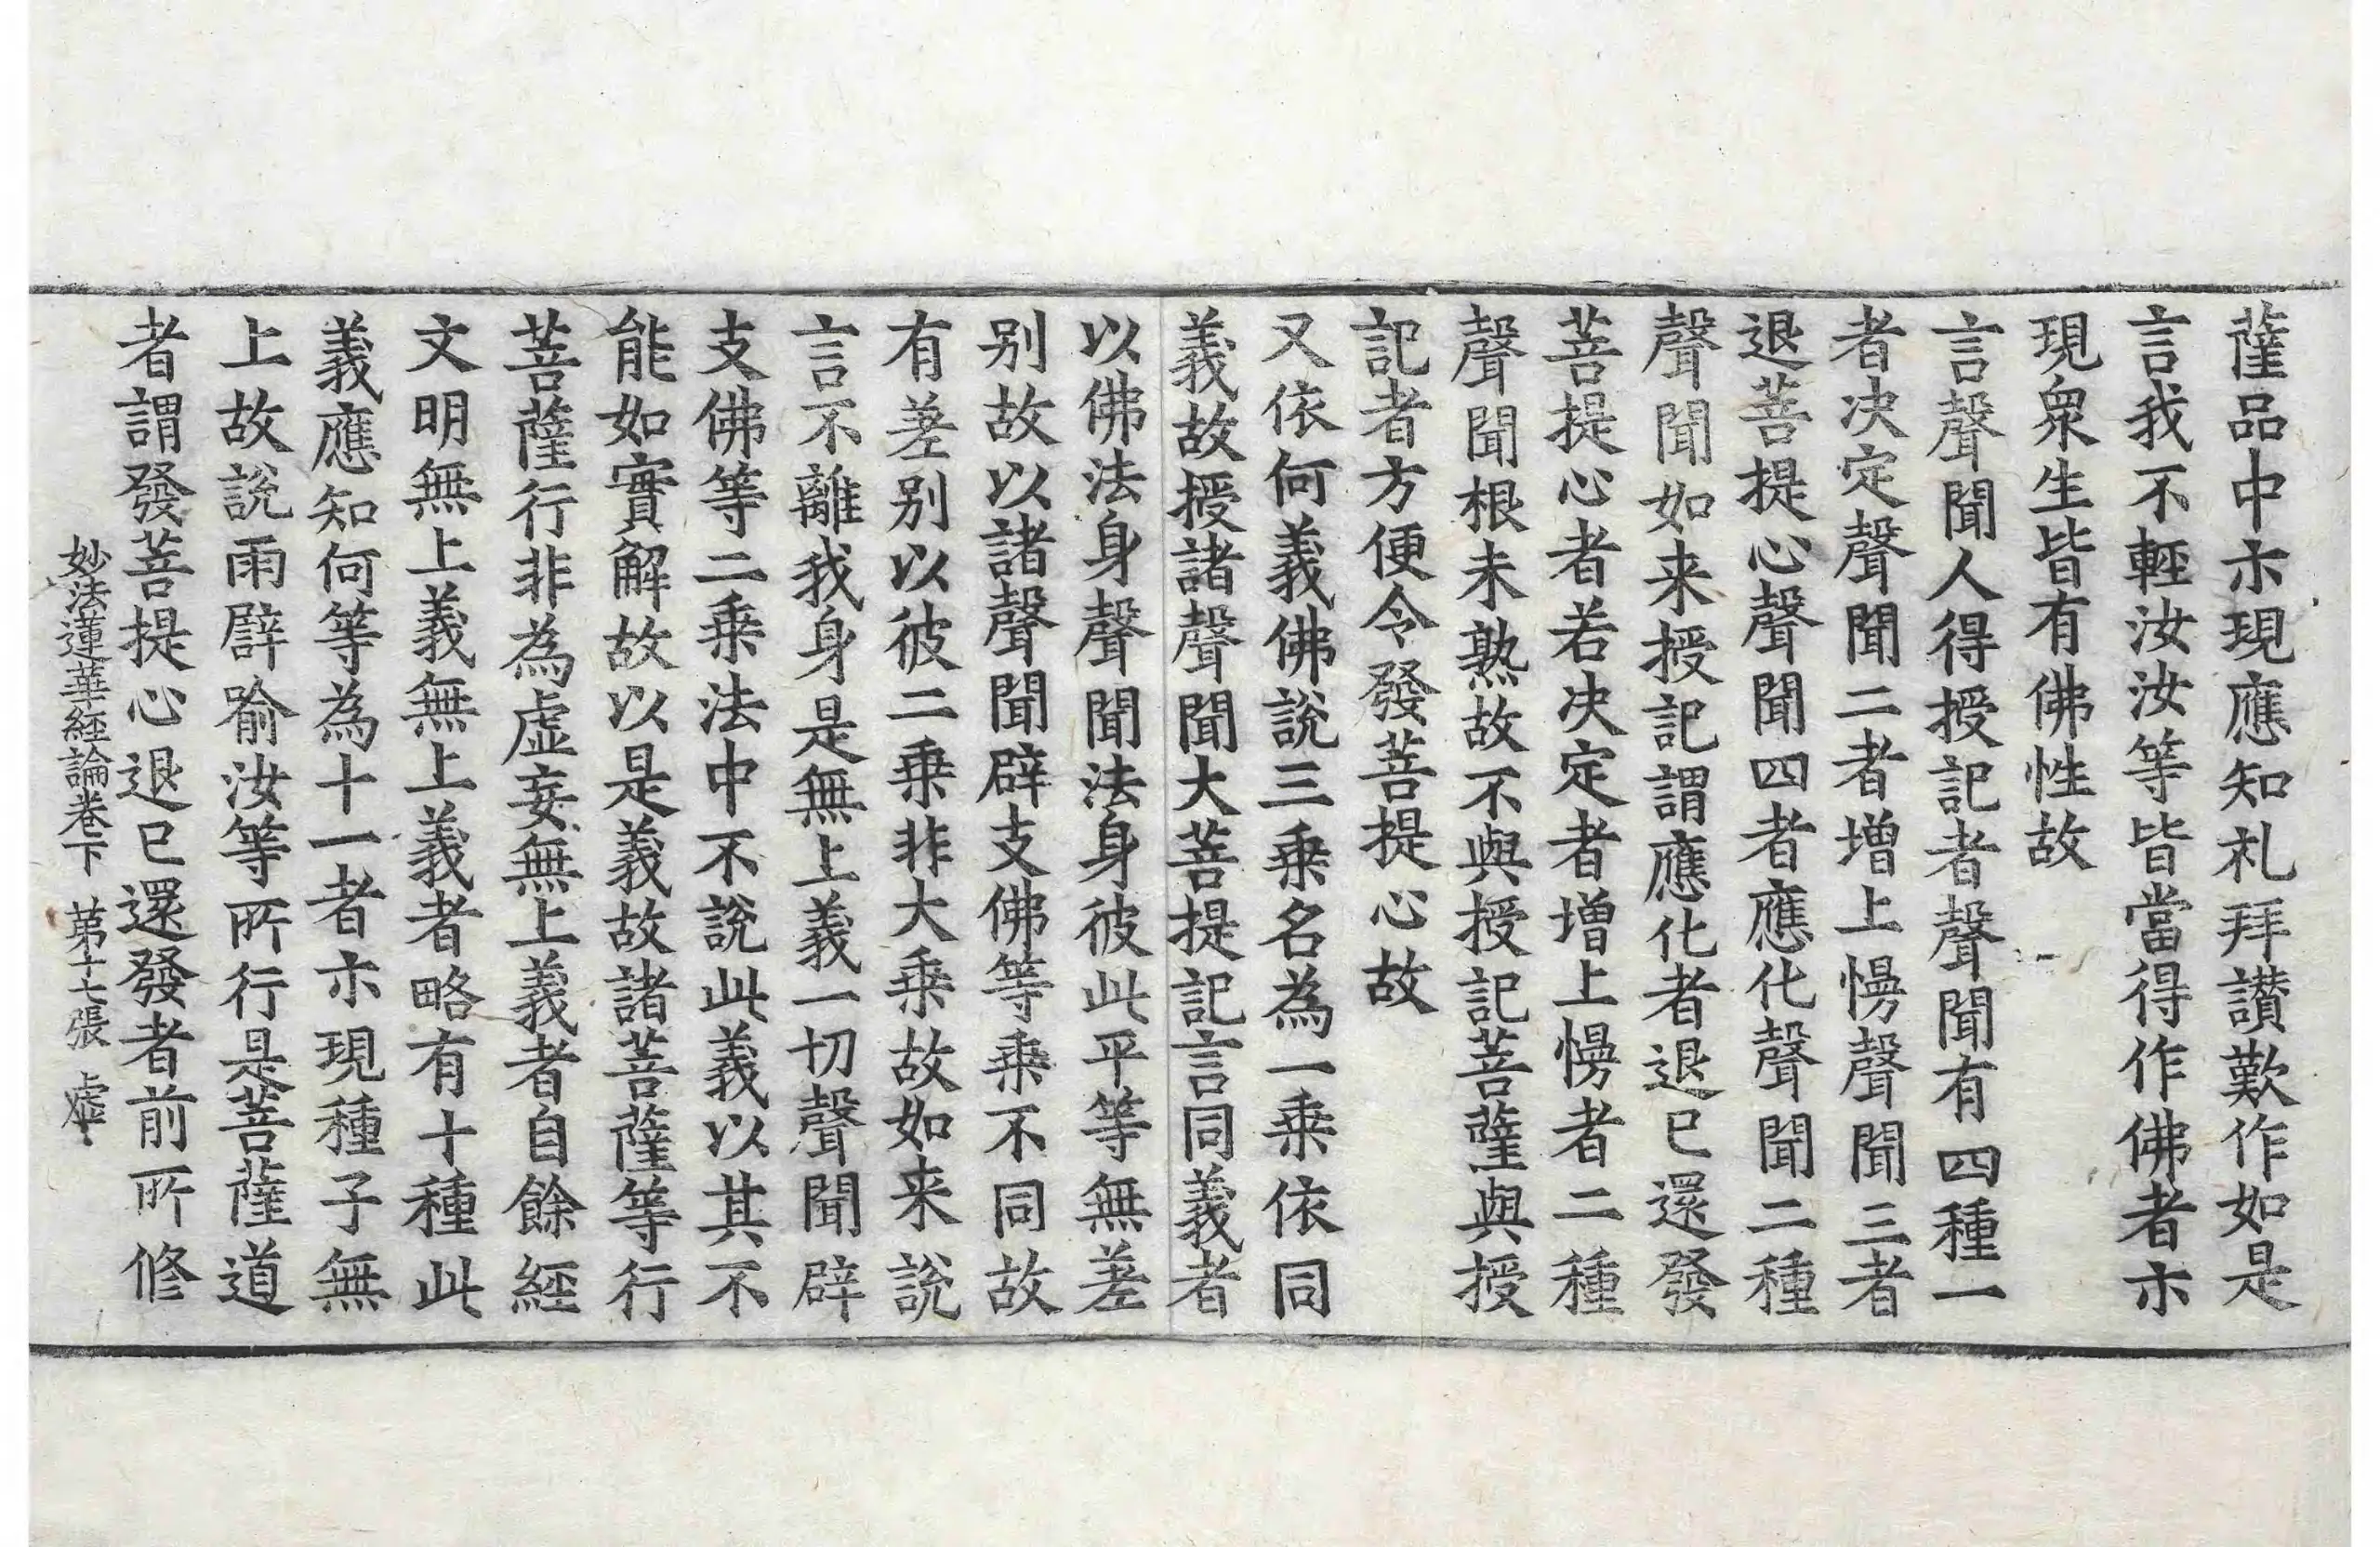 薩品中亦現應知礼拜讚歎作如是
言我不輕汝汝等皆當得作佛者亦
現衆生皆有佛性故
言聲聞人得授記者聲聞有四種一
者决定聲聞二者增上慢聲聞三者
退菩提心聲聞四者應化聲聞二種
聲聞如来授記謂應化者退已還發
菩提心者若决定者增上慢者二種
聲聞根未熟故不與授記菩薩與授
記者方便令發菩提心故
又依何義佛說三乗名為一乗依同
義故授諸聲聞大菩提記言同義者
以佛法身聲聞法身彼此平等無差
别故以諸聲聞辟支佛等乗不同故
有差别以彼二乗非大乗故如来說
言不離我身是無上義一切聲聞辟
支佛等二乗法中不說此義以其不
能如實解故以是義故諸菩薩等行
菩薩行非為虛妄無上義者自餘經
文明無上義無上義者略有十種此
義應知何等為十一者亦現種子無
上故說雨譬喻汝等所行是菩薩道
者謂發菩提心退已還發者前所修
妙法蓮華經論卷下 第十七張 虛